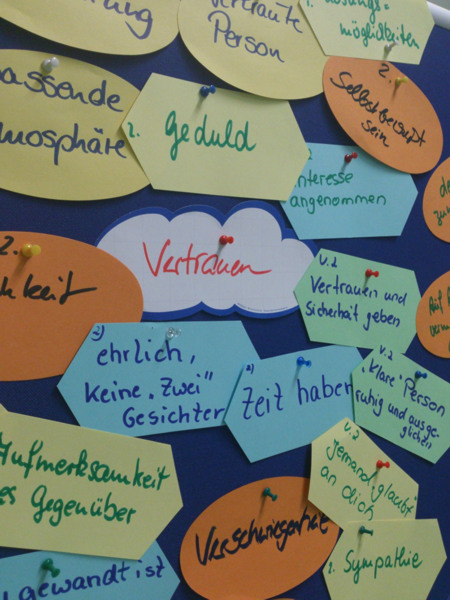 vertraute
Person
1. Lösungs=
möglichkeiten
assende
mosphäre
2. Geduld
2.
Selbstbewusst
sein
Interesse
angenommen
Vertrauen
2.
keit
V.2
Vertrauen und
Sicherheit geben
2)
ehrlich,
keine "Zwei"
Gesichter
2)
Zeit haben
V.2
"Klare" Person
ruhig und ausge-
glichen
Aufmerksamkeit
es Gegenüber
V.2
jemand "glaubt"
an dich
Verschwiegenheit
1. Sympathie
gewandt ist